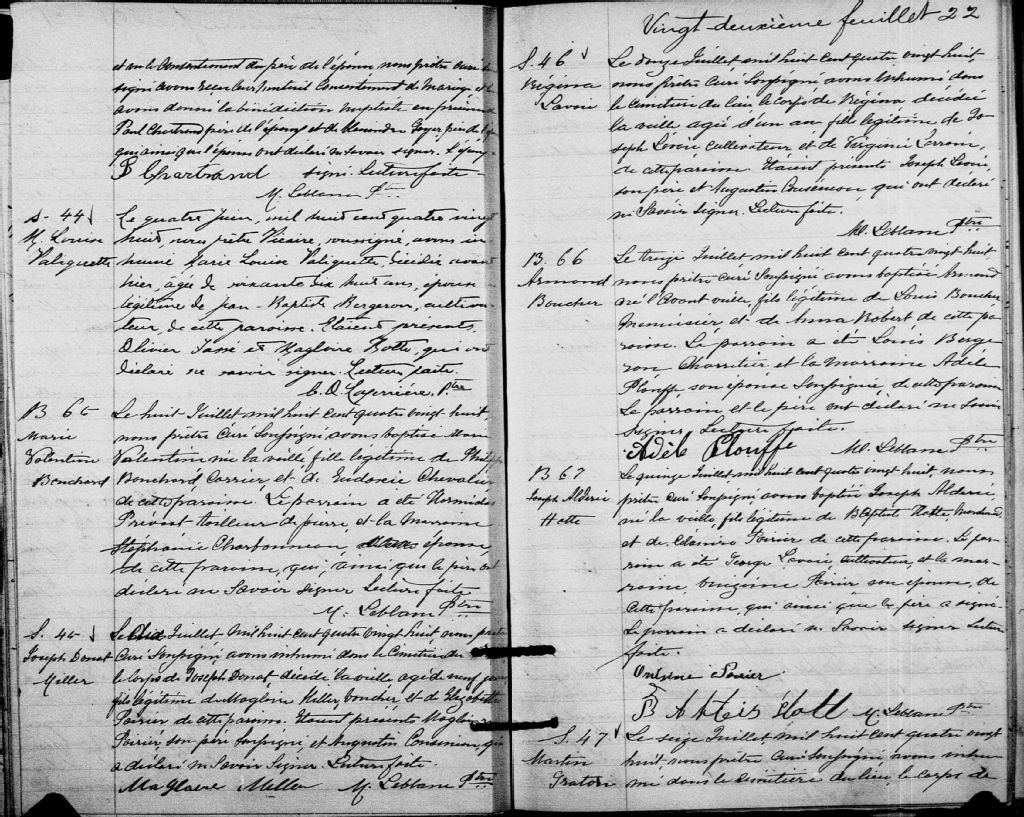 et vu le consentement du père de l'épouse nous prêtre curé
signé avons reçu leur mutuel consentement de mariage et
avons donné la bénédiction nuptiale en présence
Paul Chartrand père de l'époux et de Alexandre Goyer père de l'
qui ainsi que l'époux ont déclaré ne savoir signer.
P Chartrand signé. Lecture faite
M. Leblanc Ptre
S- 44
M. Louise
Valiquette
Le quatre Juin, mil huit cent quatre vingt
huit, nous prêtre Vicaire, soussigné, avons in-
humé Marie Louise Valiquette, décédée avant
hier, âgée de soixante dix huit ans, épouse
légitime de Jean-Baptiste Bergeron, cultiva-
teur, de cette paroisse. Etaient présents
Olivier Jassé et Magloire Hotte, qui ont
déclaré ne savoir signer. Lecture faite.
C. O. Laferrière, Ptre
B 65
Marie
Valentine
Bouchard
Le huit Juillet mil huit cent quatre vingt huit
nous prêtre Curé Soussigné avons baptisé Marie
Valentine née la veille fille légitime de Philippe
Bouchard Carrier et de Eudoxie Chevalier
de cette paroisse. Le parrain a été Hormidas
Prevost tailleur de pierre, et la Marraine
Stéphanie Charbonneau, épouse
de cette paroisse, qui, ainsi que le père ont
déclaré ne Savoir signer Lecture faite
M. Leblanc Ptre
S. 45
Joseph Donat
Miller
Le Juillet mil huit cent quatre vingt huit nous prêtre
Curé Soussigné, avons inhumé dans le Cimetière du
le Corps de Joseph Donat, décédé la veille agé de neuf
fils légitime de Magloire Miller, boucher et de Elizabeth
Poirier de cette paroisse. Etaient présents Magloire
son père Soussigné, et Augustin Cousineau, qui
a déclaré ne Savoir Signer. Lecture faite.
Maglaere Miller M. Leblanc Ptre
Vingt-deuxième feuillet 22
S. 46
Régina
Lavoie
Le douze Juillet mil huit cent quatre vingt huit,
nous prêtre Curé Soussigné avons inhumé dans
le Cimetière du lieu le Corps de Régina décédée
la veille agée d'un an, fille légitime de Jo-
seph Lavoie Cultivateur et de Virginie
de cette paroisse. Etaient présents Joseph Lavoie,
son père et Augustin Cousineau, qui ont déclaré
ne Savoir signer. Lecture faite.
M. Leblanc Ptre
B. 66
Armand
Boucher
Le treize Juillet mil huit cent quatre vingt huit,
nous prêtre curé Soussigné avons baptisé Armand
né l'avant veille, fils légitime de Louis Boucher
Menuisier, et de Anna Robert de cette pa-
roisse. Le parrain a été Louis Berge-
ron Charretier et la Marraine Adèle
Plouffe son épouse Soussignée, de cette paroisse
Le parrain et le père ont déclaré ne Savoir
Signer Lecture faite.
Adèle Plouffe M. Leblanc Ptre
B 67
Joseph Aldérie
Hotte
Le quinze Juillet, mil huit cent quatre vingt huit, nous
prêtre Curé Soussigné avons baptisé Joseph Aldérie,
né la veille, fils légitime de Baptiste Hotte,
et de Poirier de cette paroisse. Le par-
rain a été George Lavoie cultivateur, et la mar-
raine Onézime Poirier son épouse, de
cette paroisse, qui ainsi que le père a signé.
Le parrain a déclaré ne Savoir signer Lecture
faite.
Onésime Poirier
B Abtis Hott M. Leblanc Ptre
S. 47
Martin
Le seize Juillet, mil huit cent quatre vingt
huit, nous prêtre Curé Soussigné, avons inhu-
mé dans le Cimetière du lieu, le Corps de